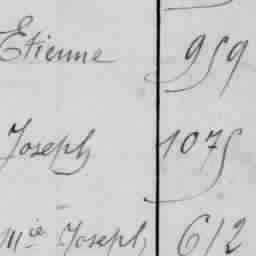 Etienne 959
Joseph 1075
Mie Joseph 612